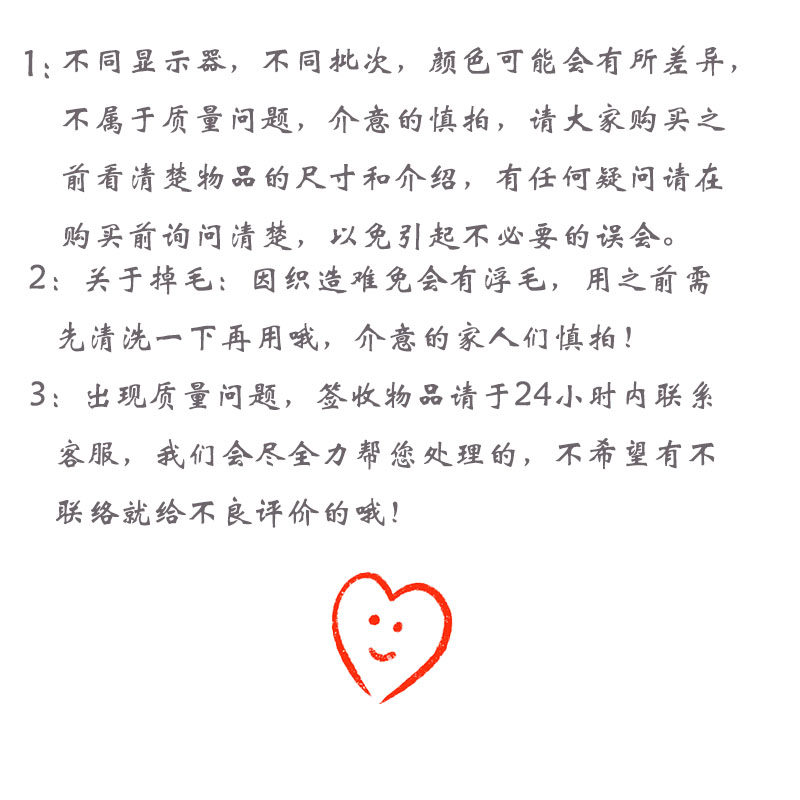 1：不同显示器，不同批次，颜色可能会有所差异，
不属于质量问题，介意的慎拍，请大家购买之
前看清楚物品的尺寸和介绍，有任何疑问请在
购买前询问清楚，以免引起不必要的误会。
2：关于掉毛：因织造难免会有浮毛，用之前需
先清洗一下再用哦，介意的家人们慎拍！
3：出现质量问题，签收物品请于24小时内联系
客服，我们会尽全力帮您处理的，不希望有不
联络就给不良评价的哦！